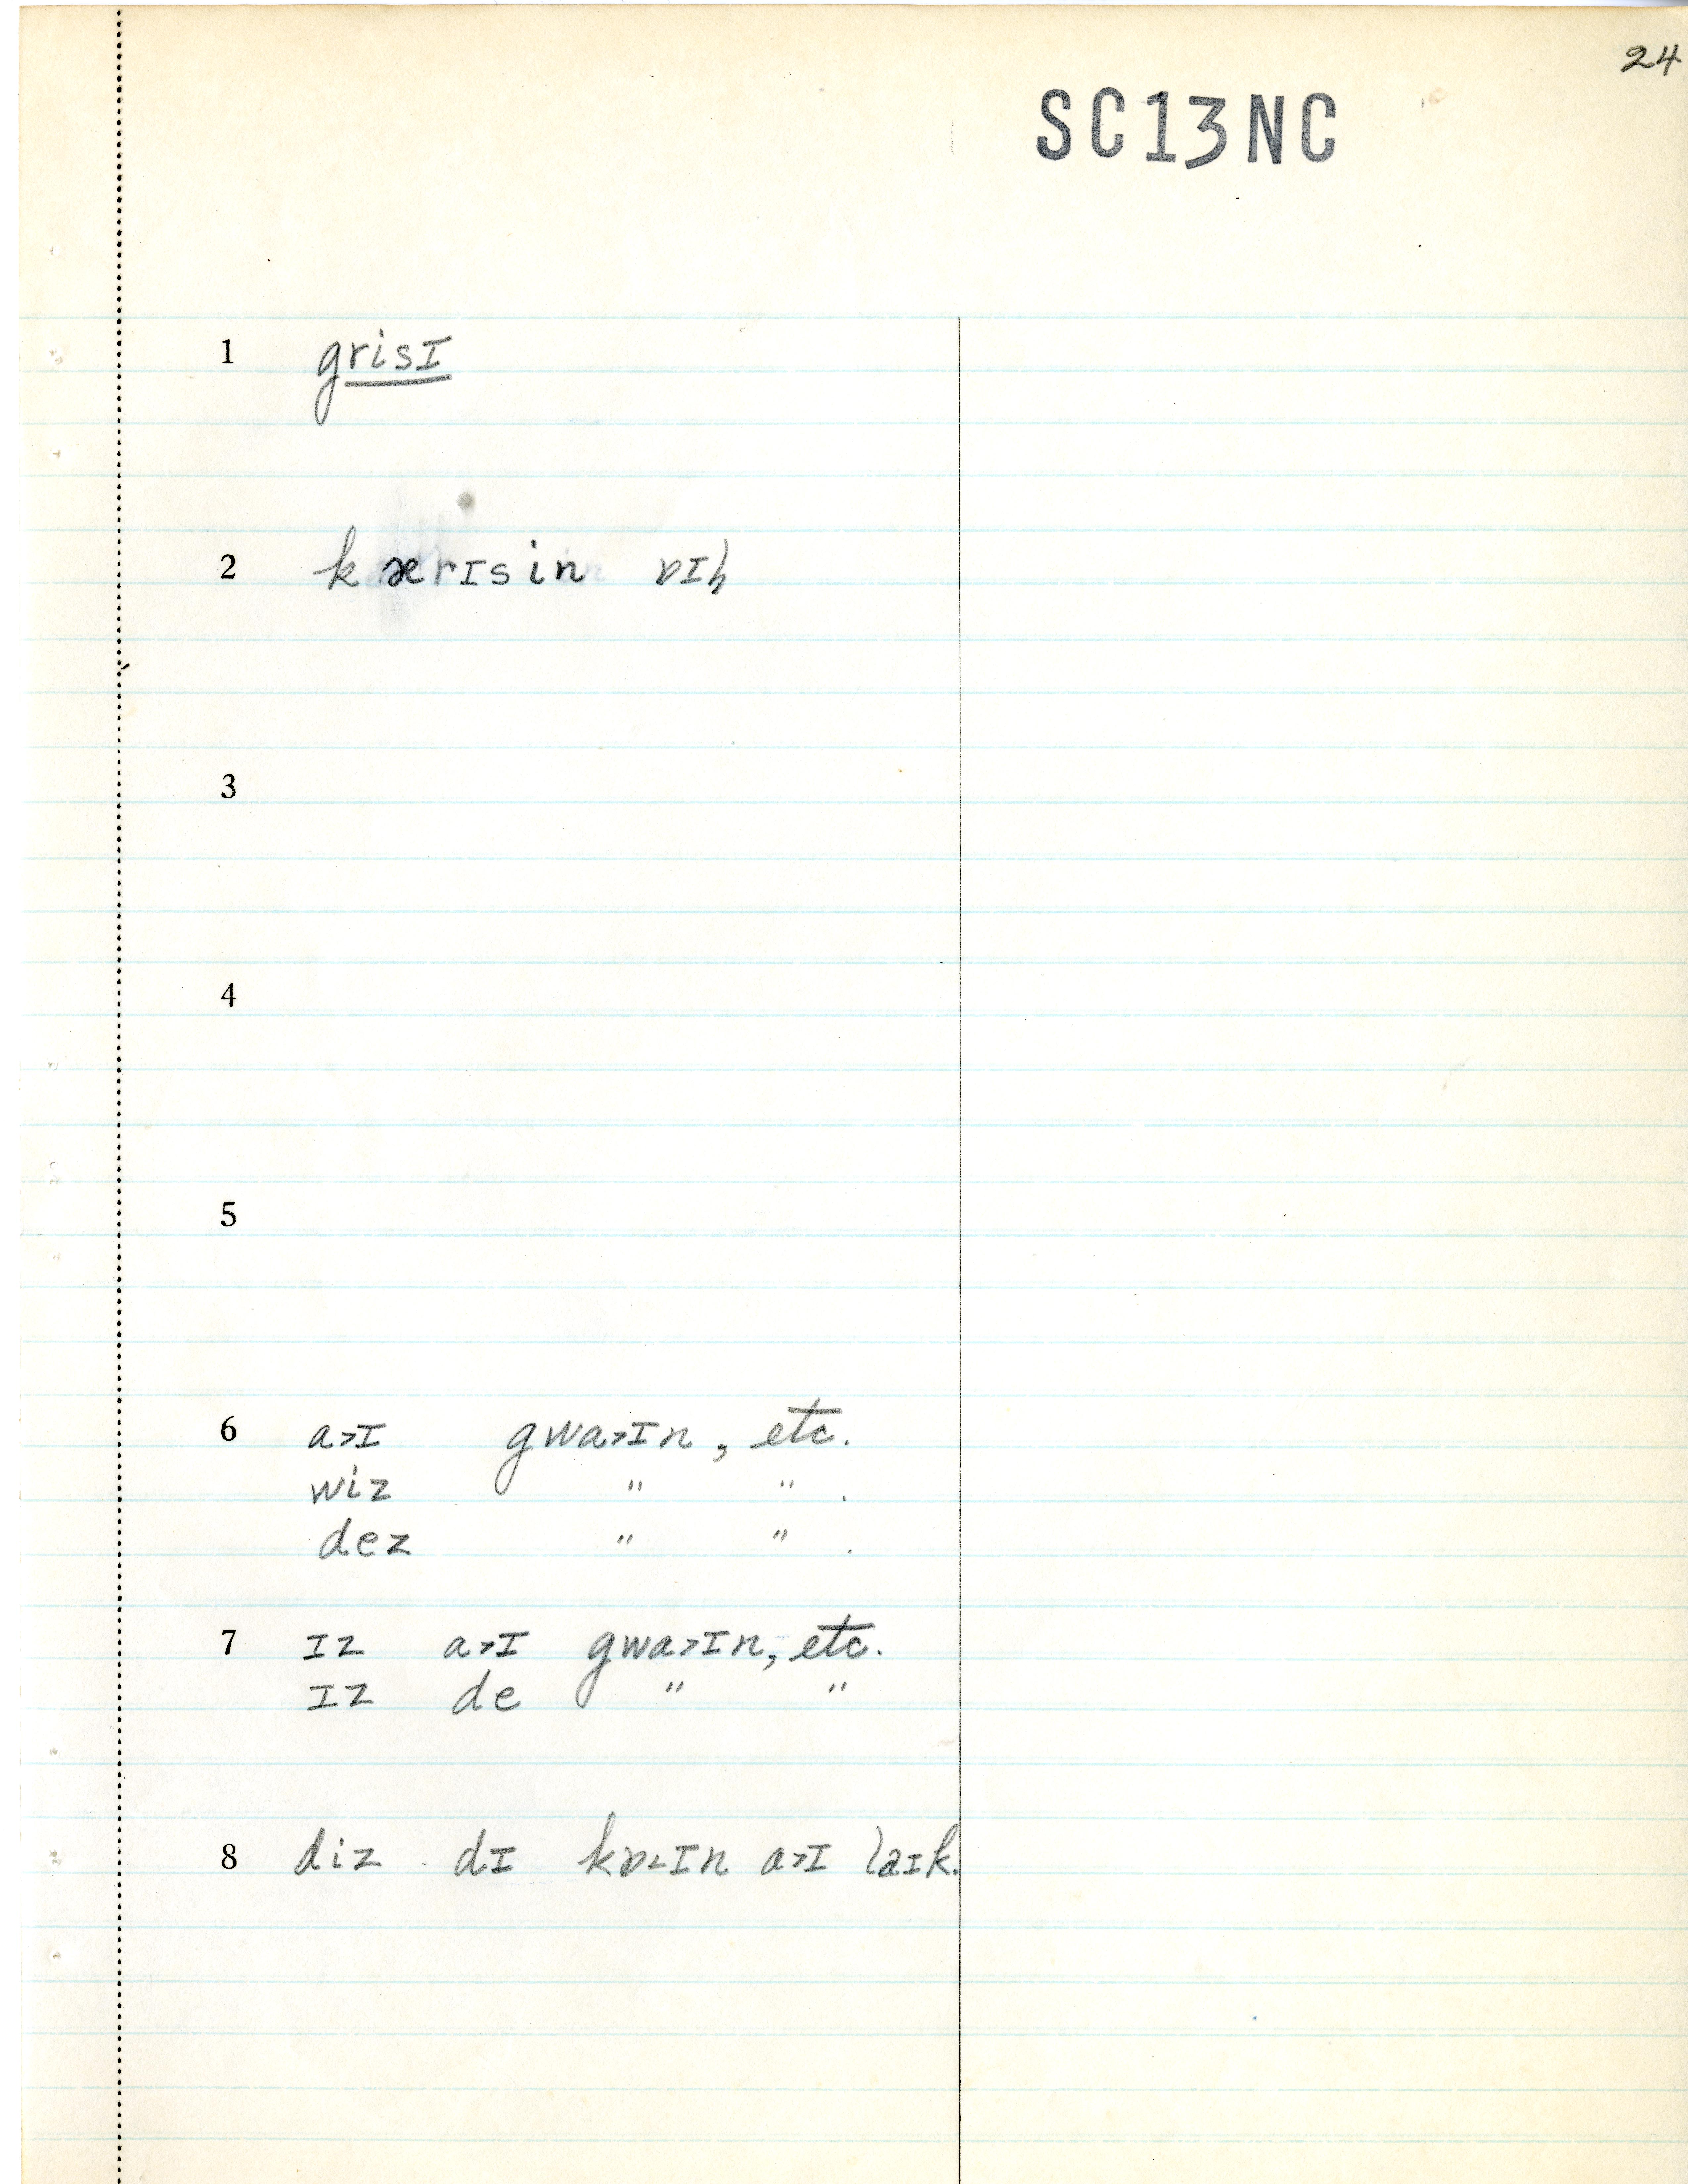 24
SC13NC
1 grisɪ
2 kærɪsin ɒɪɫ
3
4
5
6 a˃ɪ gwa˃ɪn, etc.
wiz " " .
dez " " .
7 ɪz a˃ɪ gwa˃ɪn, etc.
ɪz de " "
8 diz dɪ kɒ˂ɪn a˃ɪ laɪk.